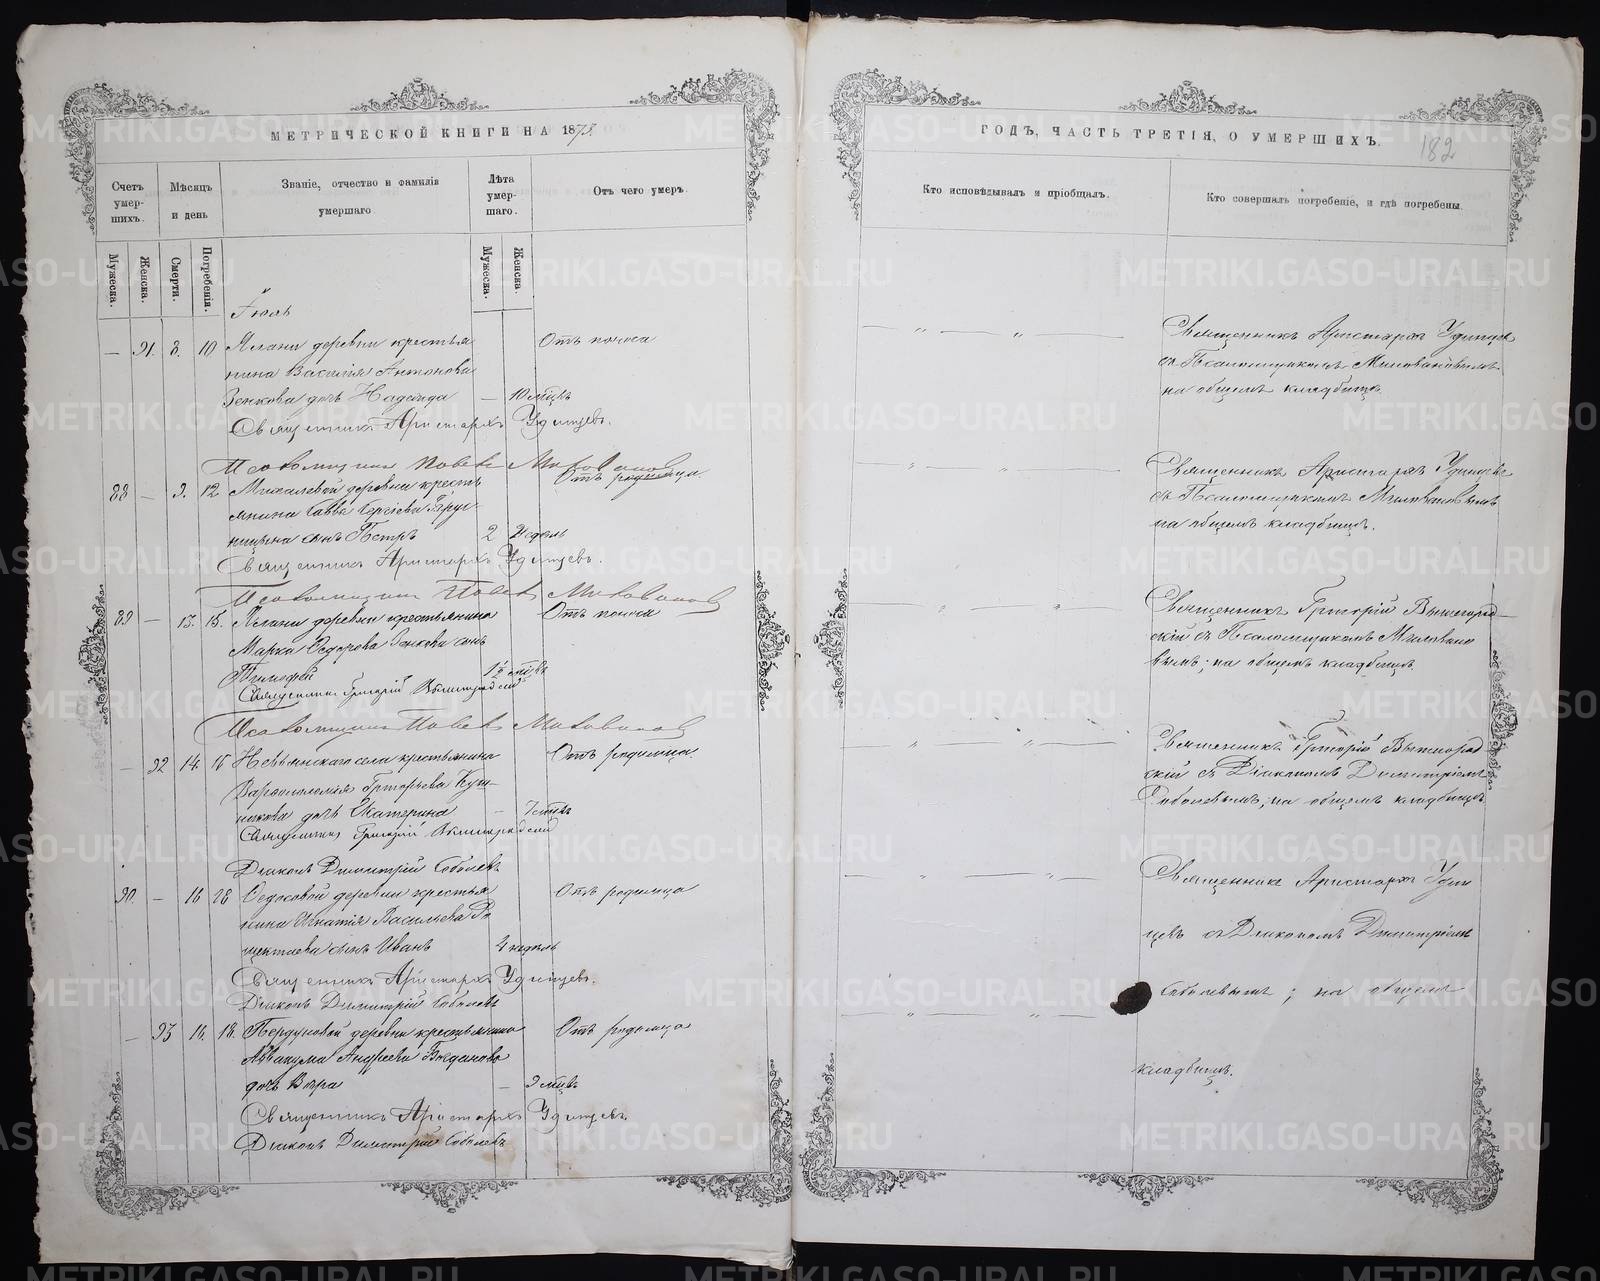 МЕТРИЧЕСКОЙ КНИГИ НА 1875
ГОДЪ, ЧАСТЬ ТРЕТІЯ, О УМЕРШИХЪ.
182
Счетъ умер-шихъ.
Мѣсяцъ и день
Званіе, отчество и фамилія умершаго
Лѣта умер-шаго.
Отъ чего умеръ.
Кто исповѣдывалъ и пріобщалъ.
Кто совершалъ погребеніе, и гдѣ погребены.
Мужеска.
Женска.
Смерти.
Погребенія.
Мужеска.
Женска.
Іюль
— 91. 8. 10 Ялани деревни крестья
Отъ поноса
нина Василія Антонова
Зенкова дочь Надежда — 10 мцвъ
Священникъ Аристархъ Удинцевъ.
Псаломщикъ Павелъ Миловановъ
Священникъ Аристархъ Удинцевъ
съ Псаломщикомъ Миловановымъ
на общемъ кладбищѣ.
88 — 9. 12 Михалевой деревни кресть
Отъ родимца.
янина Саввы Сергѣева
сынъ Петръ 2 недѣль
Священникъ Аристархъ Удинцевъ.
Псаломщикъ Павелъ Миловановъ
Священникъ Аристархъ Удинцевъ
съ Псаломщикомъ Миловановымъ
на общемъ кладбищѣ.
89 — 13. 15. Ялани деревни крестьянина
Отъ поноса
Марка Ѳедорова Зенкова сынъ
Тимофей 1½ мцвъ
Священникъ Григорій Вышегородскій
Псаломщикъ Павелъ Миловановъ
Священникъ Григорій Вышегород
скій съ Псаломщикомъ Миловано
вымъ; на общемъ кладбищѣ.
— 92 14. 16 Невьянскаго села крестьянина
Отъ родимца.
Варфоломея Григорьева
дочь Екатерина — 7 мцвъ
Священникъ Григорій Вышегородскій
Діаконъ Димитрій Соболевъ
Священникъ Григорій Вышегород
скій съ Діакономъ Димитріемъ
Соболевымъ; на общемъ кладбищѣ
90. — 16 18 Ѳедосовой деревни крестья
Отъ родимца
нина Игнатія Васильева
сынъ Иванъ 4 недѣль
Священникъ Аристархъ Удинцевъ.
Діаконъ Димитрій Соболевъ
Священникъ Аристархъ Удин
цевъ съ Діакономъ Димитріемъ
Соболевымъ; на общемъ
кладбищѣ.
— 93 16. 18. Пердуновой деревни крестьянина
Отъ родимца
Аввакума Андреева Богданова
дочь Вѣра — 9 мцвъ
Священникъ Аристархъ Удинцевъ.
Діаконъ Димитрій Соболевъ
METRIKI.GASO-URAL.RU